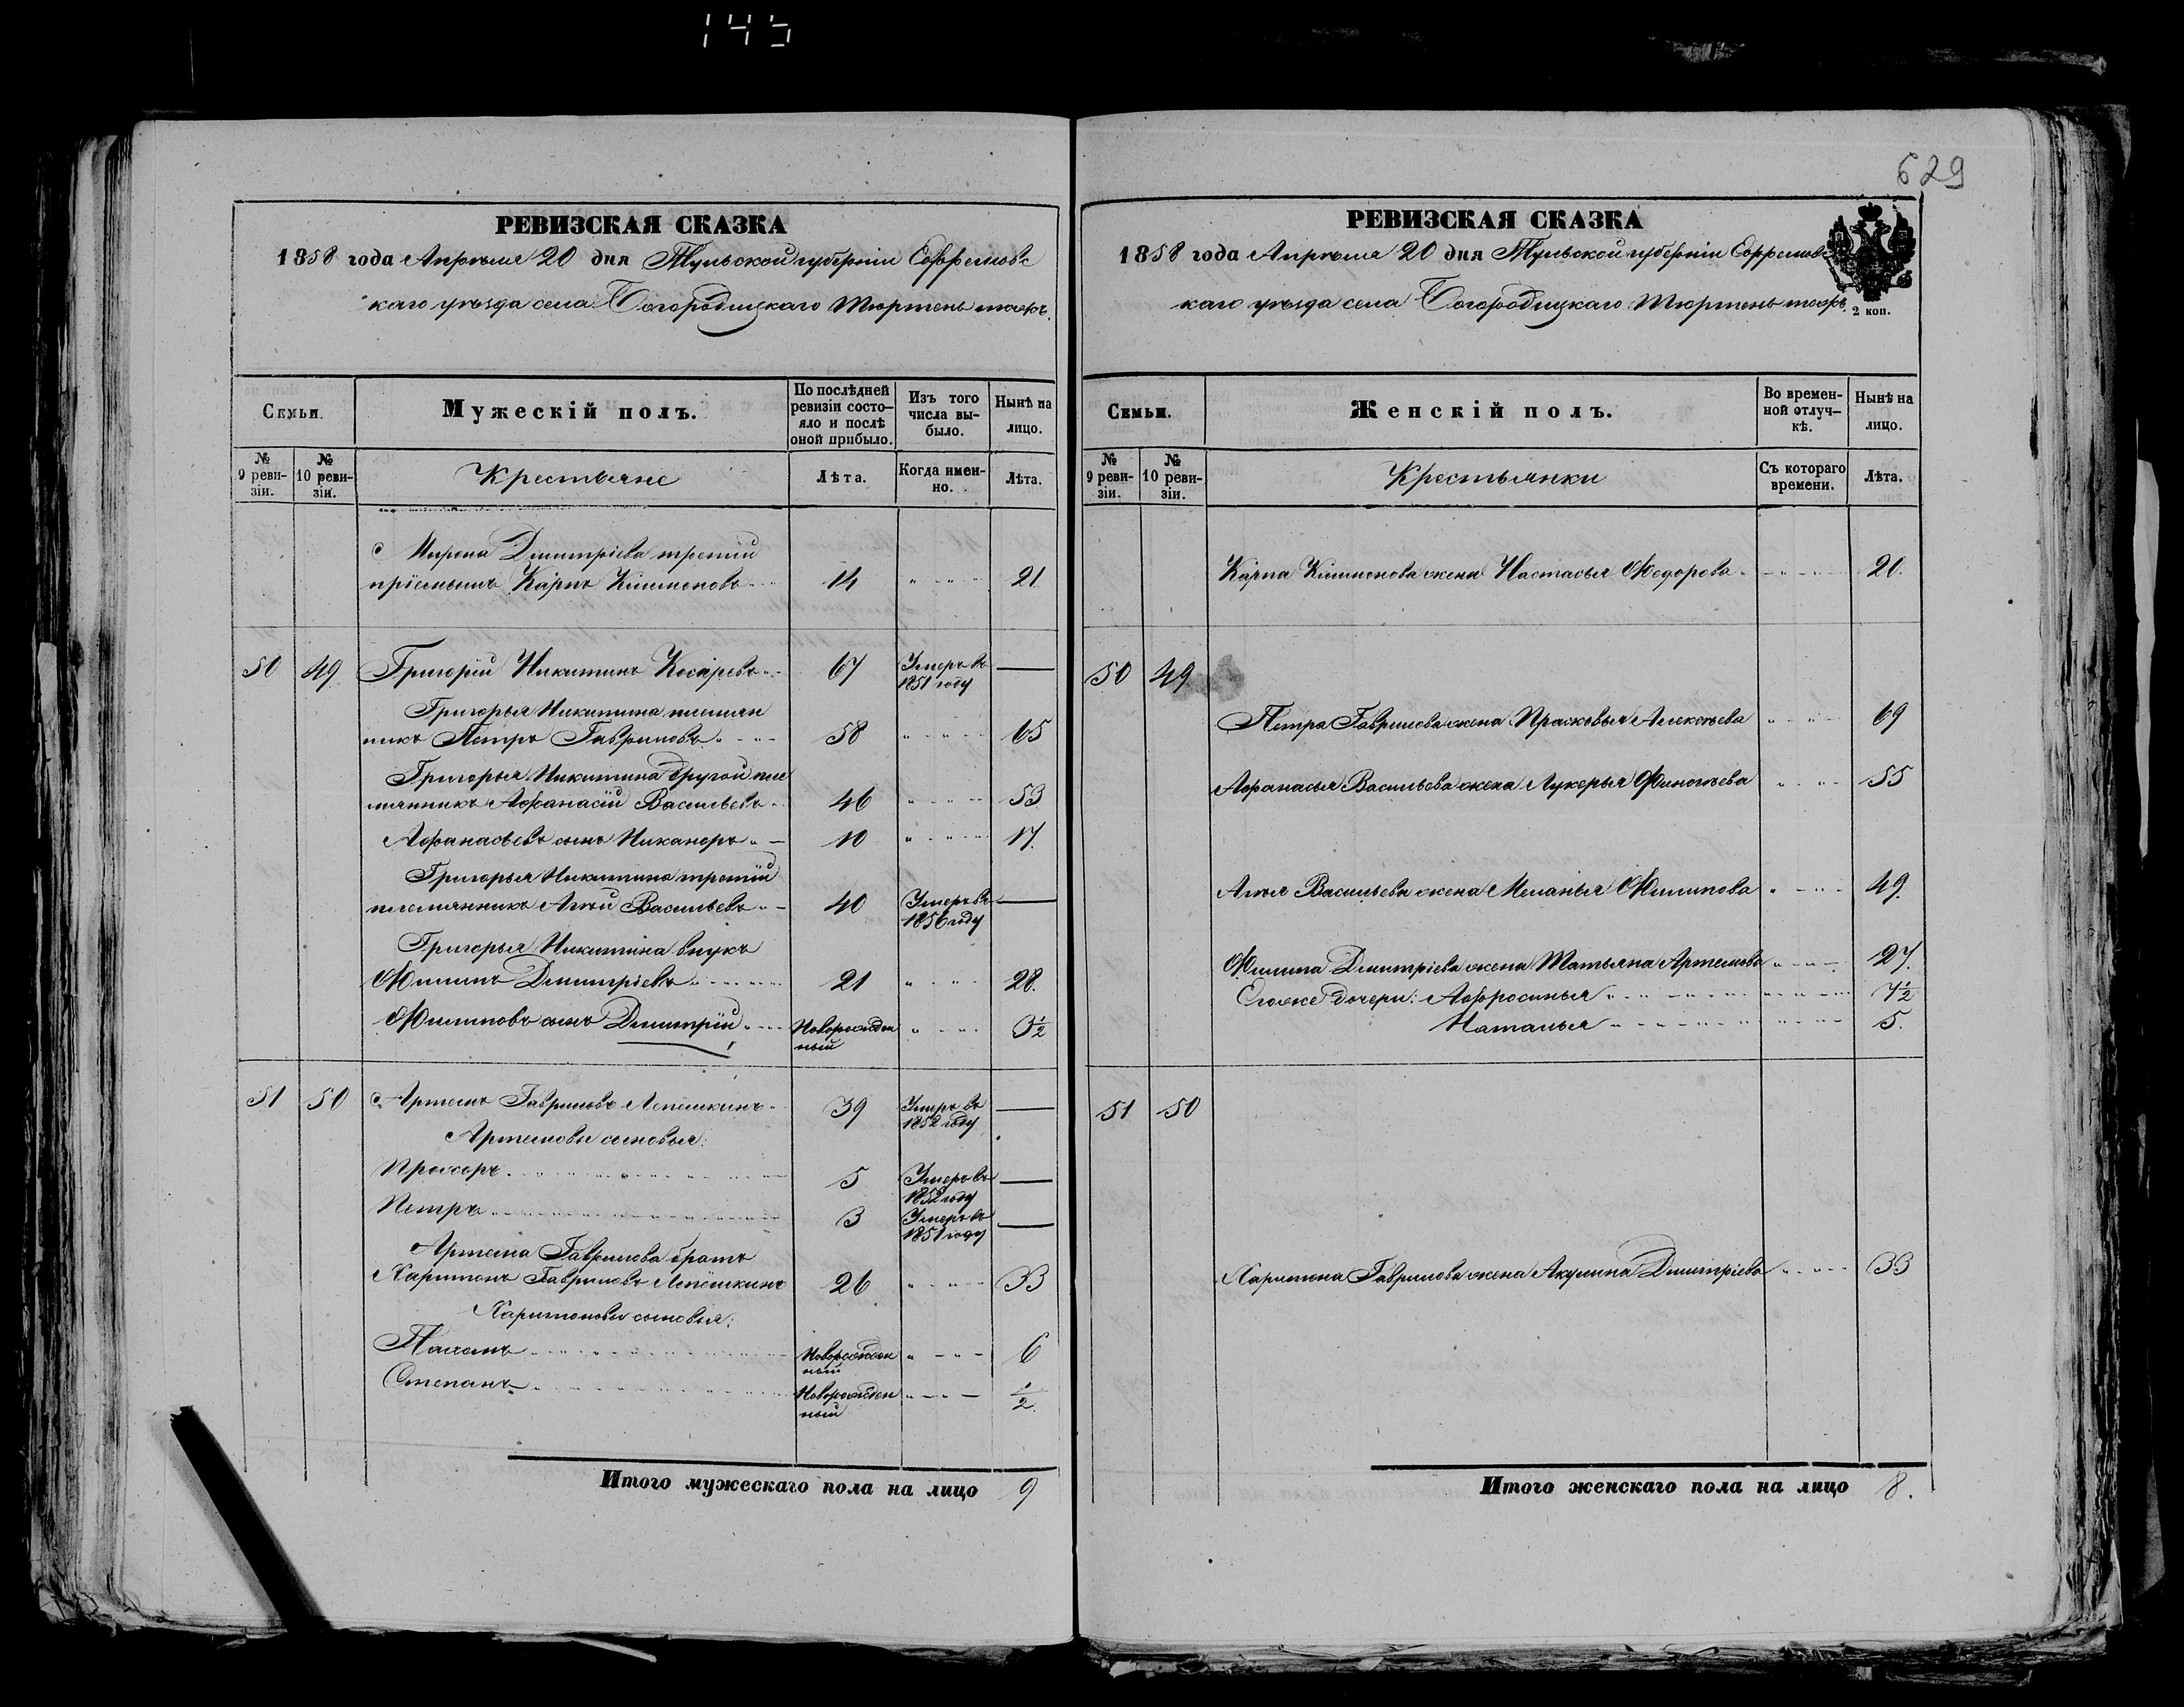 145
629
РЕВИЗСКАЯ СКАЗКА
1858 года Апрѣля 20 дня Тульской губерніи Ефремовс
каго уѣзда села Богородицкаго Тюртень тожъ.
Семьи.
Мужескій полъ.
По послѣдней ревизіи состо-
яло и послѣ оной прибыло.
Изъ того числа вы-
было.
Нынѣ на лицо.
№ 9 реви-
зіи.
№ 10 реви-
зіи.
Крестьяне
Лѣта.
Когда имен-
но.
Лѣта.
Мирона Дмитріева третій
пріемышъ Карпъ 14 21
50 49 Григорій Никитинъ Косаревъ 67 Умеръ въ 1851 году —
Григорья Никитина племян
никъ Петръ Гавриловъ 58 65
Григорья Никитина другой пле
мянникъ Афанасій Васильевъ 46 53
Афанасьевъ сынъ Никаноръ 10 17.
Григорья Никитина третій
племянникъ Агѣй Васильевъ 40 Умеръ въ 1856 году —
Григорья Никитина внукъ
Филипъ Дмитріевъ 21 28.
Филиповъ сынъ Дмитрій Новорожден
ный 3½
51 50 Артемъ Гавриловъ Лепёшкинъ 39 Умеръ въ 1852 году —
Артемовы сыновья:
Прохоръ 5 Умеръ въ 1852 году —
Петръ 3 Умеръ въ 1851 году —
Артема Гаврилова братъ
Харитонъ Гавриловъ Лепёшкинъ 26 33
Харитоновы сыновья:
Новорожден
ный 6
Степанъ Новорожден
ный ½
Итого мужескаго пола на лицо 9
РЕВИЗСКАЯ СКАЗКА
1858 года Апрѣля 20 дня Тульской губерніи Ефремовс
каго уѣзда села Богородицкаго Тюртень тожъ
2 коп.
Семьи.
Женскій полъ.
Во времен-
ной отлуч-
кѣ.
Нынѣ на лицо.
№ 9 реви-
зіи.
№ 10 реви-
зіи.
Крестьянки
Съ котораго времени.
Лѣта.
Карпа жена Настасья Федорова 20.
50 49
Петра Гаврилова жена Прасковья Алексѣева 69
Афанасья Васильева жена Лукерья Финогѣева 55
Агѣя Васильева жена Меланья Филипова 49.
Филипа Дмитріева жена Татьяна Артемова 27.
Егоже дочери: Афросинья 7½
Наталья 5.
51 50
Харитона Гаврилова жена Акулина Дмитріева 33
Итого женскаго пола на лицо 8.